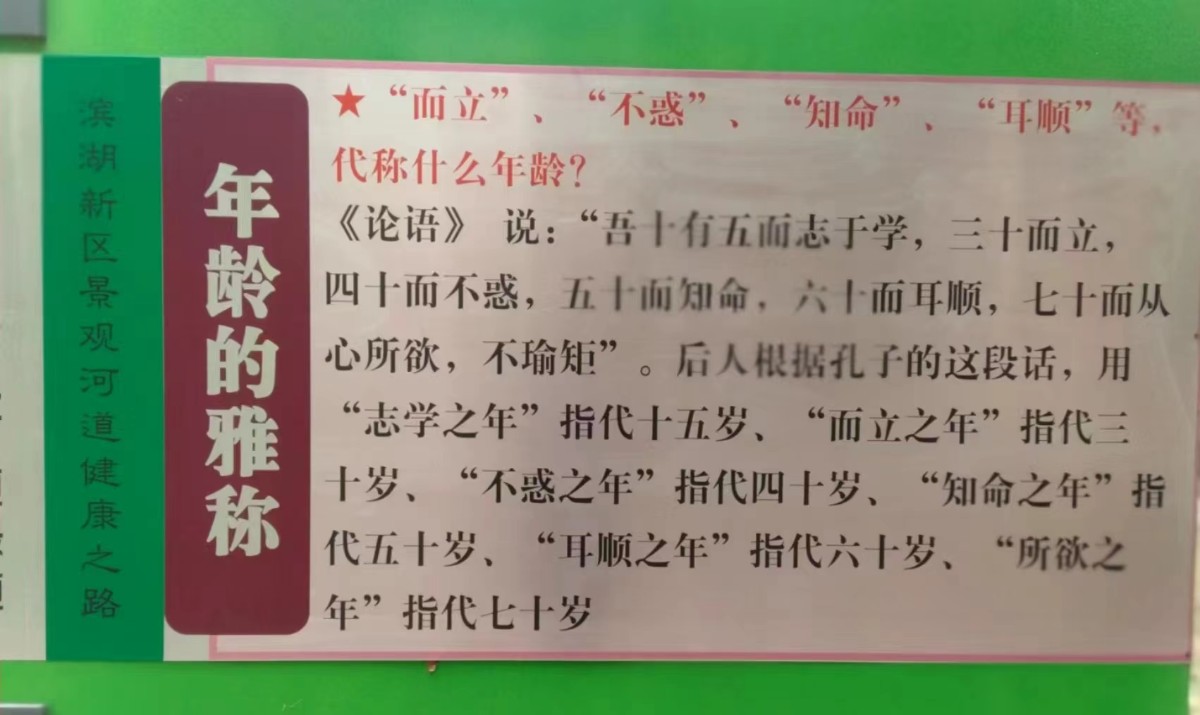 滨湖新区景观河道健康之路
年龄的雅称
★“而立”、“不惑”、“知命”、“耳顺”等,
代称什么年龄?
《论语》 说:“吾十有五而志于学,三十而立,
四十而不惑,五十而知命,六十而耳顺,七十而从
心所欲,不瑜矩”。后人根据孔子的这段话,用
“志学之年”指代十五岁、“而立之年”指代三
十岁、“不惑之年”指代四十岁、“知命之年”指
代五十岁、“耳顺之年”指代六十岁、“所欲之
年”指代七十岁